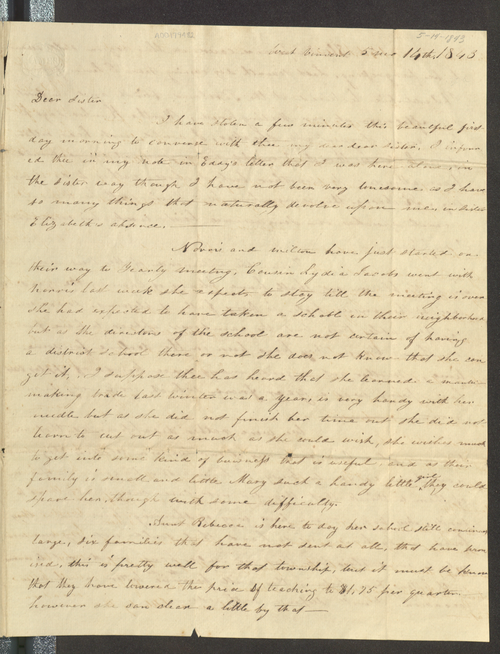 5-14-1843
West Vincent 5 mo 14th 1843
Dear Sister
I have stolen a few minutes this beautiful first
day morning to converse with thee my dear sister, I inform
ed thee in my note in letter that I was here alone in
the sister way though I have not been very lonesome as I have
so many things that naturally devolve upon me in sister
Elizabeth's absence.
Norris and milton have just started on
their way to Yearly meeting, Cousin Lydia Jacobs went with
Norris last week she expects to stay till the meeting is over
she had expected to have taken a school in their neighborhood
but as the directors of the school are not certain of having
a district school there or not she does not know that she can
get it. I suppose thee has heard that she learned a mantua
making trade last winter a year, is very handy with her
needle but as she did not finish her time out she did not
learn to cut out as much as she could wish, she wishes much
to get into some kind of business that is useful, and as their
family is small and little Mary such a handy little girl They could
spare her, though with some difficulty.
Aunt Rebecca is here to day her school still continues
large, six families that have not sent at all, that have
, this is pretty well for that township, but it must be known
that they have lowered the price of teaching to $1,75 per quarter
however she can clear a little by that